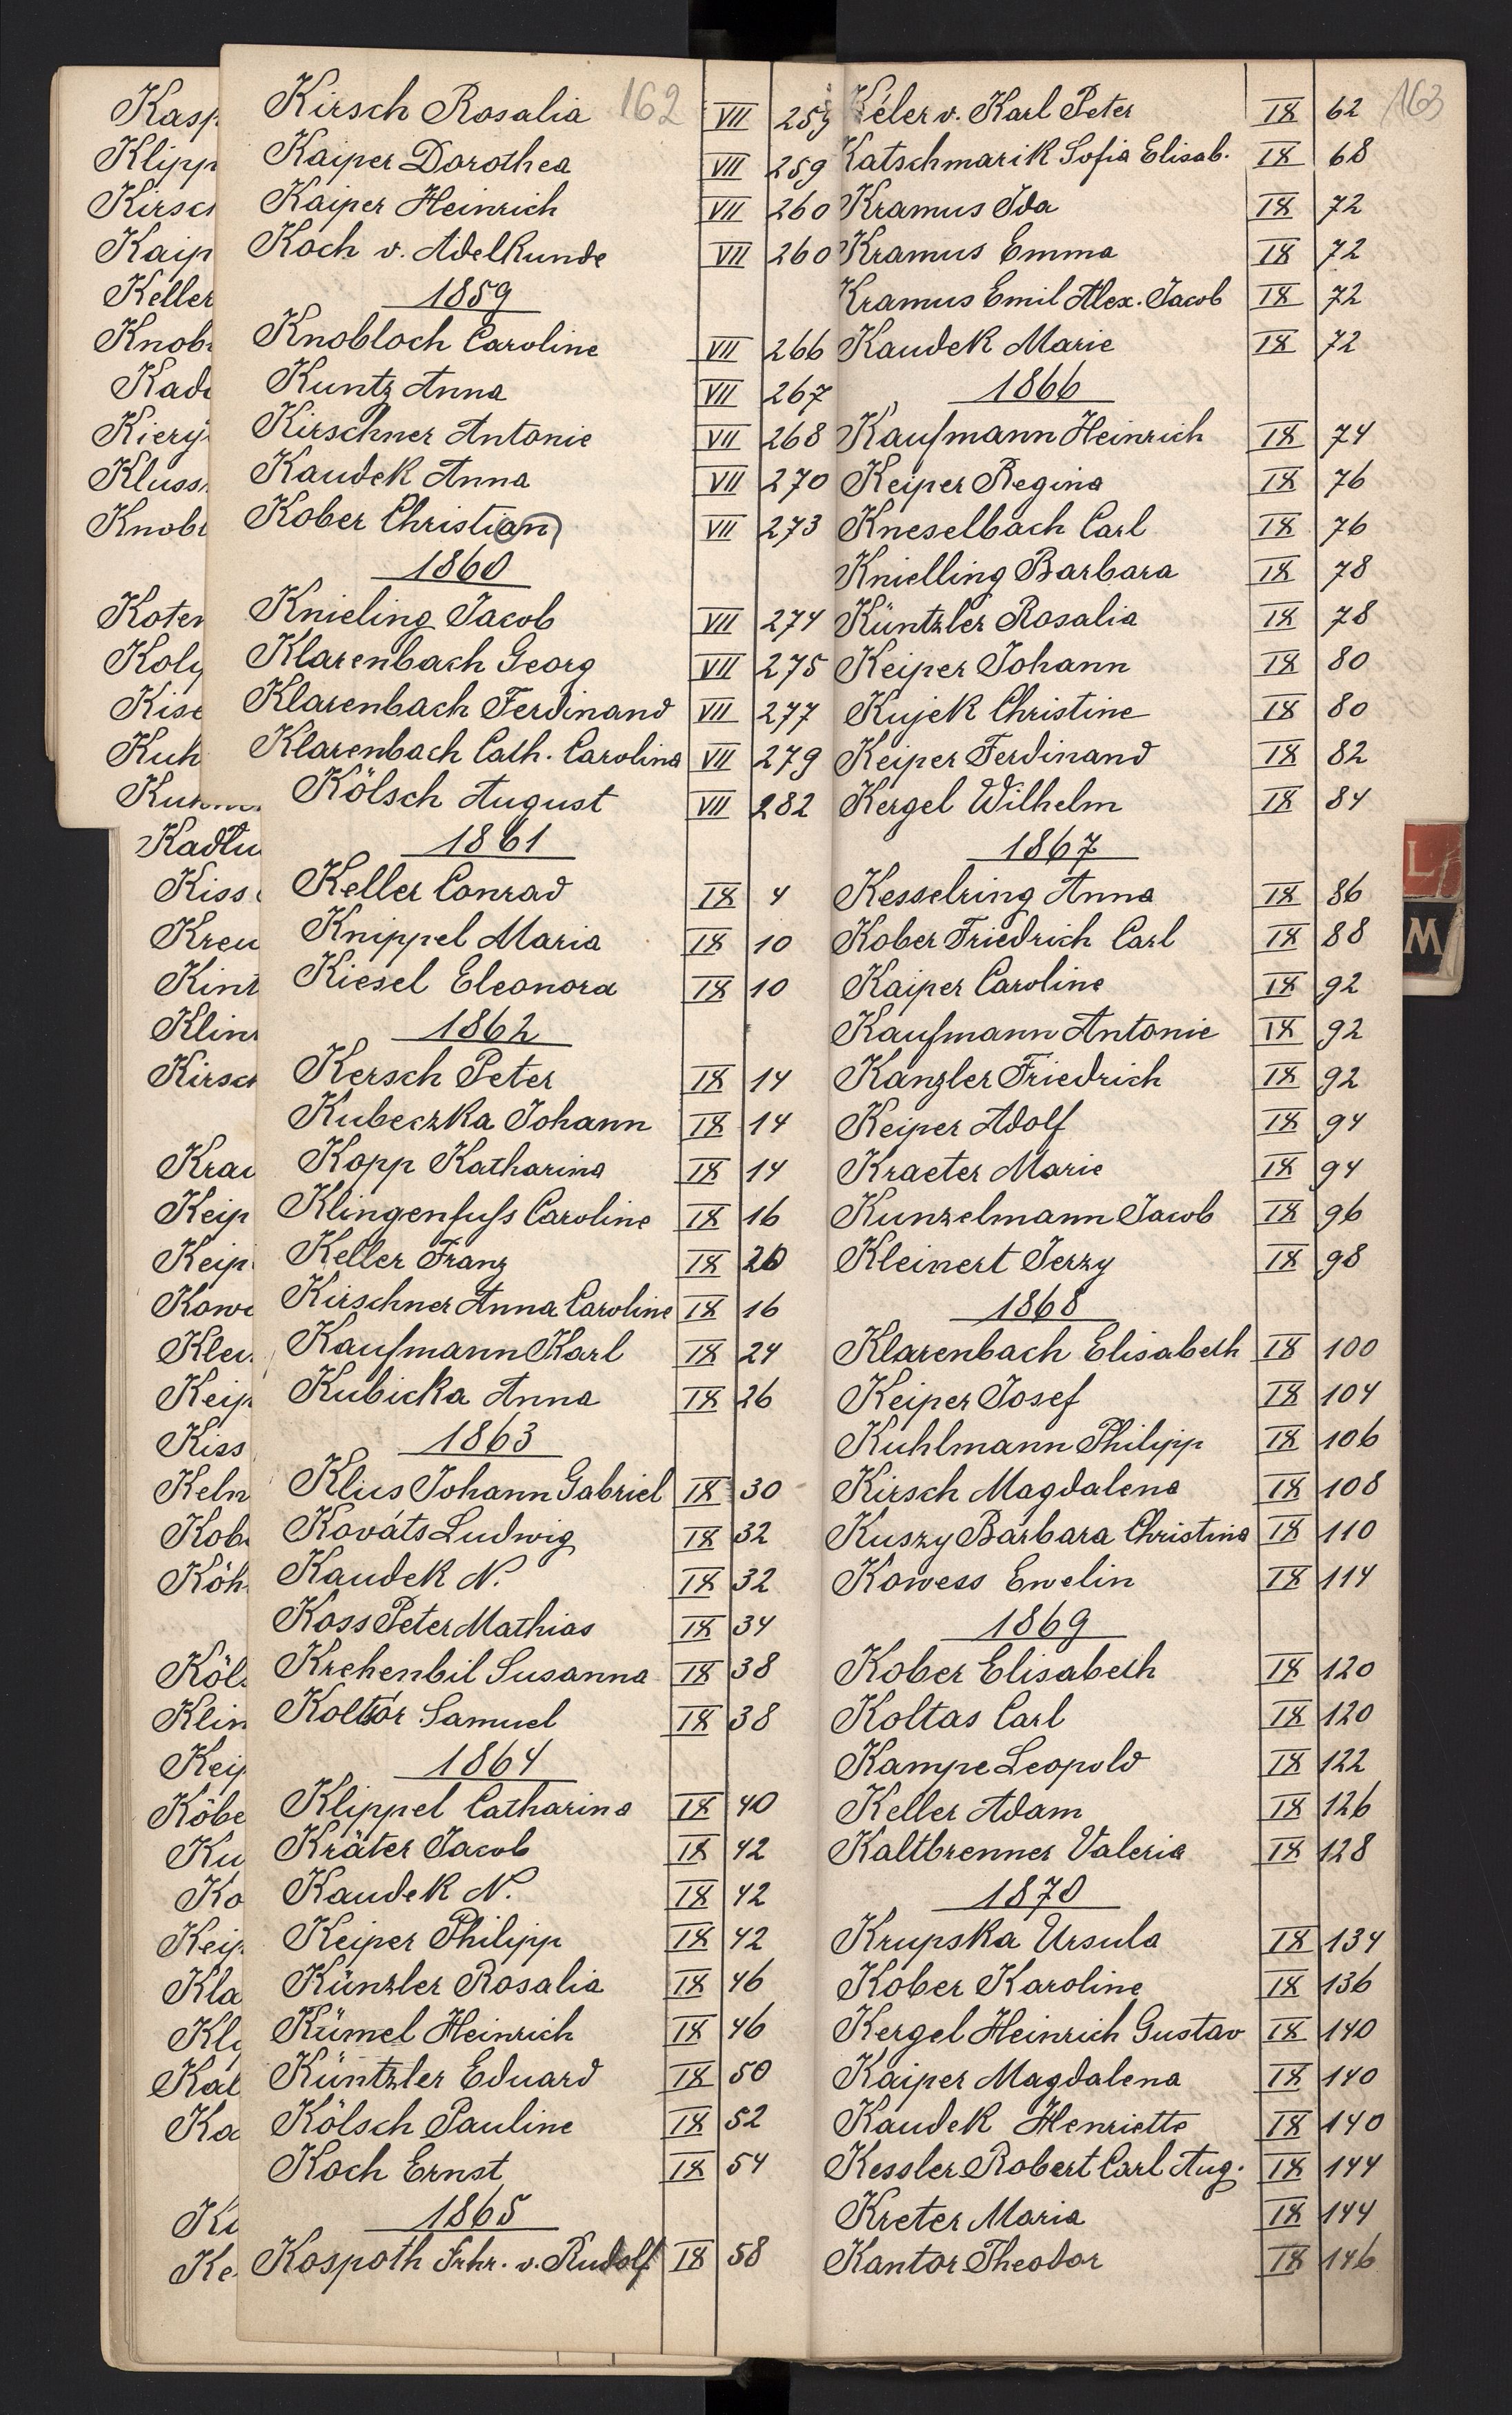 Kirsch Rosalia 162 VII 259
Kaiper Dorothea VII 259
Kaiper Heinrich VII 260
Koch v. Adelkunde VII 260
1859
Knobloch Caroline VII 266
Kuntz Anna VII 267
Kirschner Antonie VII 268
Kaudek Anna VII 270
Kober Christian VII 273
1860
Knieling Jacob VII 274
Klarenbach Georg VII 275
Klarenbach Ferdinand VII 277
Klarenbach Cath. Carolina VII 279
Kölsch August VII 282
1861
Keller Conrad IX 4
Knippel Maria IX 10
Kiesel Eleonora IX 10
1862
Kersch Peter IX 14
Kubeczka Johann IX 14
Kopp Katharina IX 14
Klingenfuß Caroline IX 16
Keller Franz IX 20
Kirschner Anna Caroline IX 16
Kaufmann Karl IX 24
Kubicka Anna IX 26
1863
Klius Johann Gabriel IX 30
Kováts Ludwig IX 32
Kaudek N. IX 32
Koss Peter Mathias IX 34
Krehenbil Susanna IX 38
Samuel IX 38
1864
Klippel Catharina IX 40
Kräter Jacob IX 42
Kaudek N. IX 42
Keiper Philipp IX 42
Künzler Rosalia IX 46
Kümel Heinrich IX 46
Küntzler Eduard IX 50
Kölsch Pauline IX 52
Koch Ernst IX 54
1865
Kospoth Frhr. v. Rudolf IX 58
Kéler v. Karl Peter IX 62 163
Katschmarik Sofia Elisab. IX 68
Kramus Ida IX 72
Kramus Emma IX 72
Kramus Emil Alex. Jacob IX 72
Kaudek Marie IX 72
1866
Kaufmann Heinrich IX 74
Keiper Regina IX 76
Kneselbach Carl IX 76
Knielling Barbara IX 78
Küntzler Rosalia IX 78
Keiper Johann IX 80
Kujek Christine IX 80
Keiper Ferdinand IX 82
Kergel Wilhelm IX 84
1867
Kesselring Anna IX 86
Kober Friedrich Carl IX 88
Kaiper Caroline IX 92
Kaufmann Antonie IX 92
Kanzler Friedrich IX 92
Keiper Adolf IX 94
Kraeter Marie IX 94
Kunzelmann Jacob IX 96
Kleinert Jerzy IX 98
1868
Klarenbach Elisabeth IX 100
Keiper Josef IX 104
Kuhlmann Philipp IX 106
Kirsch Magdalena IX 108
Kuszy Barbara Christina IX 110
Kowess Ewelin IX 114
1869
Kober Elisabeth IX 120
Koltas Carl IX 120
Kampe Leopold IX 122
Keller Adam IX 126
Kaltbrenner Valeria IX 128
1870
Krupska Ursula IX 134
Kober Karoline IX 136
Kergel Heinrich Gustav IX 140
Kaiper Magdalena IX 140
Kaudek Henriette IX 140
Kessler Robert Carl Aug. IX 144
Kreter Maria IX 144
Kantor Theodor IX 146
L
M